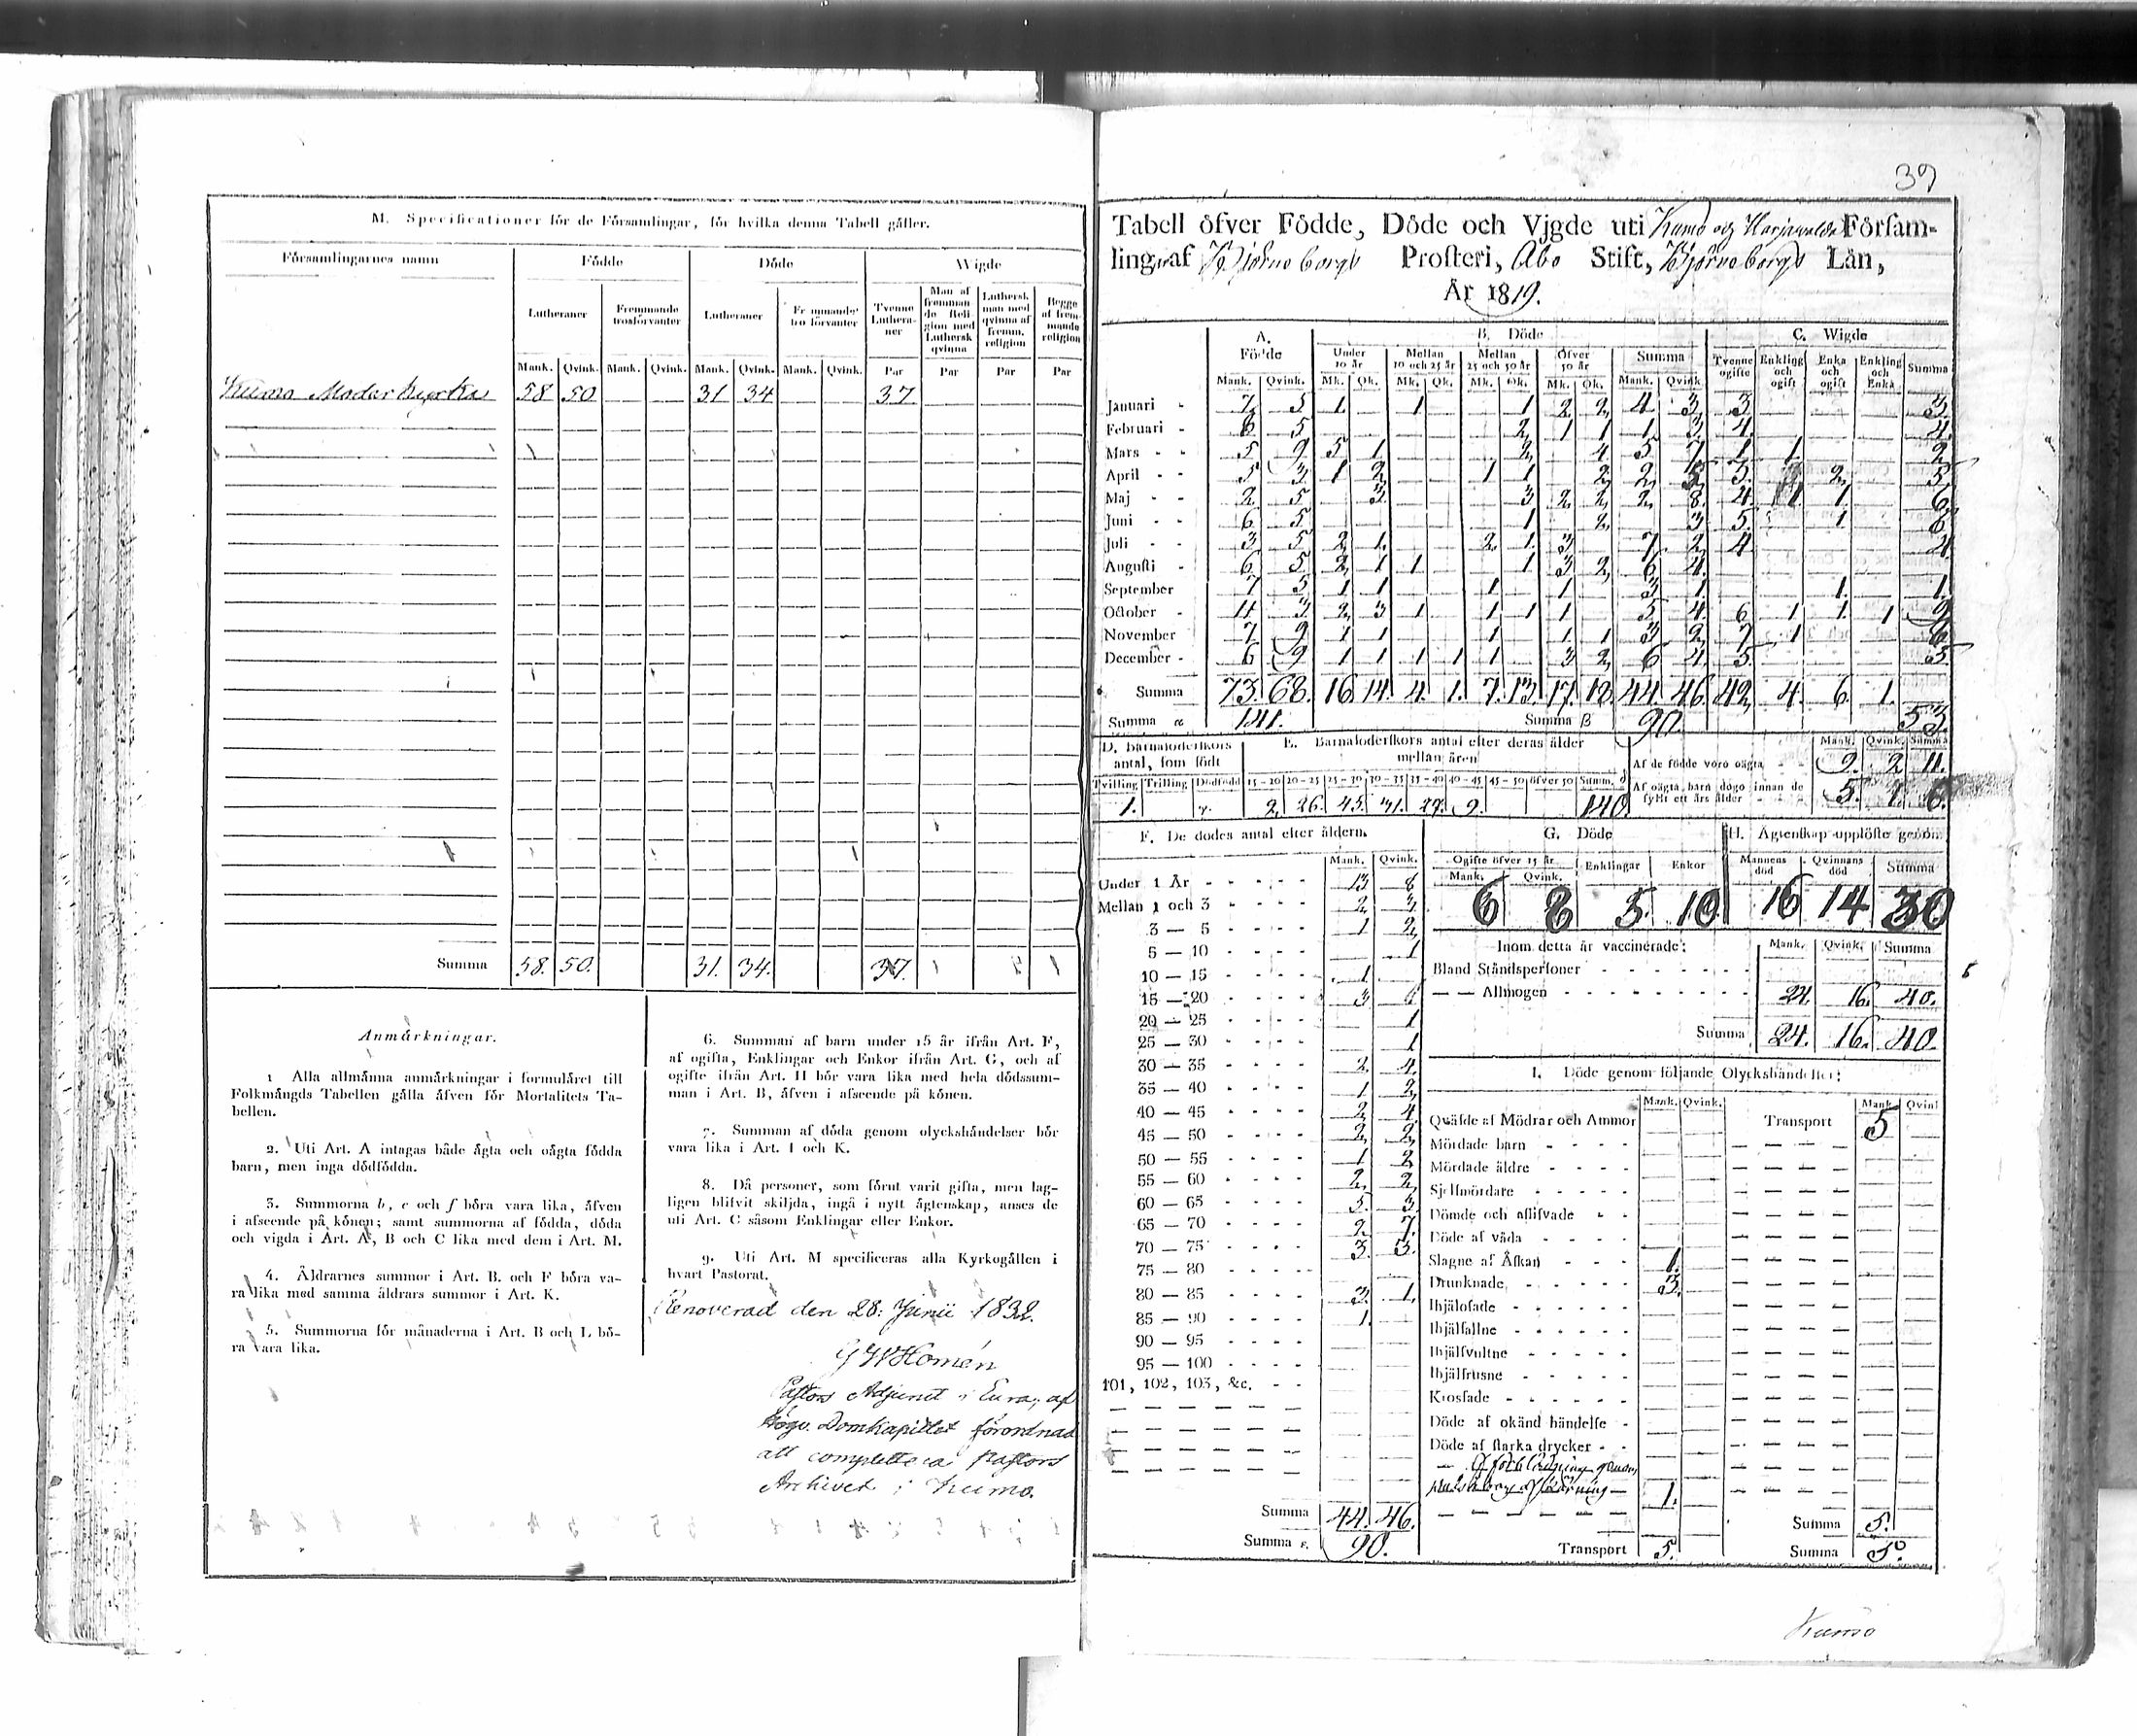 M. Specificationer för de Församlingar, för hvilka denna Tabell gäller.
Församlingarnes namn Födde Döde Wigde
Lutheraner Fremmande trosförvanter Lutheraner Fremmande trosförvanter Tvenne Lutheraner Man af fremmande Religion med Luthersk qvinna Luthersk man med qvinna af fremm. religion Begge af fremmande religion
Mank. Qvink. Mank. Qvink. Mank. Qvink. Mank. Qvink. Par Par Par Par
Kumo Moderkyrka 58 50 31 34 37
Summa 58. 50. 31. 34. 37.
Anmärkningar.
1 Alla allmänna anmärkningar i formuläret till
Folkmängds Tabellen gälla äfven för Mortalitets Ta-
bellen.
2. Uti Art. A intagas både ägta och oägta födda
barn, men inga dödfödda.
3. Summorna b, e och f böra vara lika, äfven
i afseende på könen; samt summorna af födda, döda
och vigda i Art. A, B och C lika med dem i Art. M.
4. Äldrarnes summor i Art. B. och F böra va-
ra lika med samma äldrars summor i Art. K.
5. Summorna för månaderna i Art. B och L bö-
ra vara lika.
6. Summan af barn under 15 år ifrån Art. F,
af ogifta, Enklingar och Enkor ifrån Art. G, och af
ogifte ifrän Art. H bör vara lika med hela dödssum-
man i Art. B, äfven i afseende på könen.
7. Summan af döda genom olyckshändelser bör
vara lika i Art. I och K.
8. Då personer, som förut varit gifta, men lag-
ligen blifvit skiljda, ingå i nytt ägtenskap, anses de
uti Art. C såsom Enklingar eller Enkor.
9. Uti Art. M specificeras alla Kyrkogällen i
hvart Pastorat.
Renoverad den 28: Junii 1832.
G W Homén
Pastors Adjunct i Eura, af
Högv. Domkapitlet förordnad
att complettera Pastors
Archivet i Kumo.
39
Tabell öfver Födde, Döde och Vigde uti Kumo och Harjavalda Försam-
ling af Björneborgs Prosteri, Åbo Stift, Björneborgs Län,
År 1819.
A. Födde B. Döde C. Wigde
Under 10 år Mellan 10 och 25 år Mellan 25 och 50 år Öfver 50 år Summa Tvenne ogifte Enkling och ogift Enka och ogift Enkling och Enka Summa
Mank. Qvink. Mk. Qk. Mk. Qk. Mk. Qk. Mk. Qk. Mank. Qvink.
Januari 7 5 1 1 1 2 2 4 3 3 3.
Februari 6 5 2 1 1 1 3 4 4.
Mars 5 9 5 1 2 4 5 7 1 1 2
April 5 3 1 2 1 1 2 2 5 3. 2 5
Maj 2 5 3 3 2 2 2 8 4 1 1 6
Juni 6 5 1 2 3 5 1 6
Juli 3 5 2 1 2 1 3 7 2 4 4
Augusti 6 5 2 1 1 1 3 2 6 4
September 7 5 1 1 1 1 3 1 1 1
October 4 3 2 3 1 1 1 1 5 4 6 1 1 1 9
November 7 9 1 1 1 1 1 3 2 7 1 8
December 6 9 1 1 1 1 1 3 2 6 4 5 5
Summa 73 68 16 14 4 1 7 13 17 18 44 46 42 4 6 1
Summa α 141. Summa β 90. 53
D. Barnaföderskors antal, som födt
E. Barnaföderskors antal efter deras ålder mellan åren
Tvilling Trilling Dödfödd 15-20 20-25 25-30 30-35 35-40 40-45 45-50 öfver 50 Summ.
1. 2 26 45 31 27 9 140
Mank. Qvink. Summa
Af de födde voro oägta 9 2 11
Af oägta barn dogo innan de fyllt ett års ålder 5 1 6
F. De dödes antal efter åldern.
Mank. Qvink.
Under 1 År 13 8
Mellan 1 och 3 2 3
3 — 5 1 2
5 — 10 1
10 — 15 1
15 — 20 3
20 — 25 1
25 — 30 1
30 — 35 2 4
35 — 40 1 2
40 — 45 2 4
45 — 50 2 2
50 — 55 1 2
55 — 60 2 2
60 — 65 5 3
65 — 70 2 7
70 — 75 3 3
75 — 80
80 — 85 3 1
85 — 90 1
90 — 95
95 — 100
101, 102, 103, &c.
Summa 44. 46.
Summa 90.
G. Döde
Ogifte öfver 15 år Enklingar Enkor
Mank. Qvink.
6 8 5 10
H. Ägtenskap upplöste genom
Mannens död Qvinnans död Summa
16 14 30
Inom detta år vaccinerade: Mank. Qvink. Summa
Bland Ståndspersoner
— — Allmogen 24. 16. 40.
Summa 24. 16. 40.
I. Döde genom följande Olyckshändelser:
Mank. Qvink. Mank. Qvink
Quäfde af Mödrar och Ammor Transport 5
Mördade barn
Mördade äldre
Sjelfmördare
Dömde och aflifvade
Döde af våda
Slagne af Åskan 1.
Drunknade 3.
Ihjälofade
Ihjälfallne
Ihjälfvultne
Ihjälfrusne
Krosfade
Döde af okänd händelse
Döde af starka drycker
Af förblödning genom
1.
Summa 5.
Transport 5. Summa 5.
Kumo